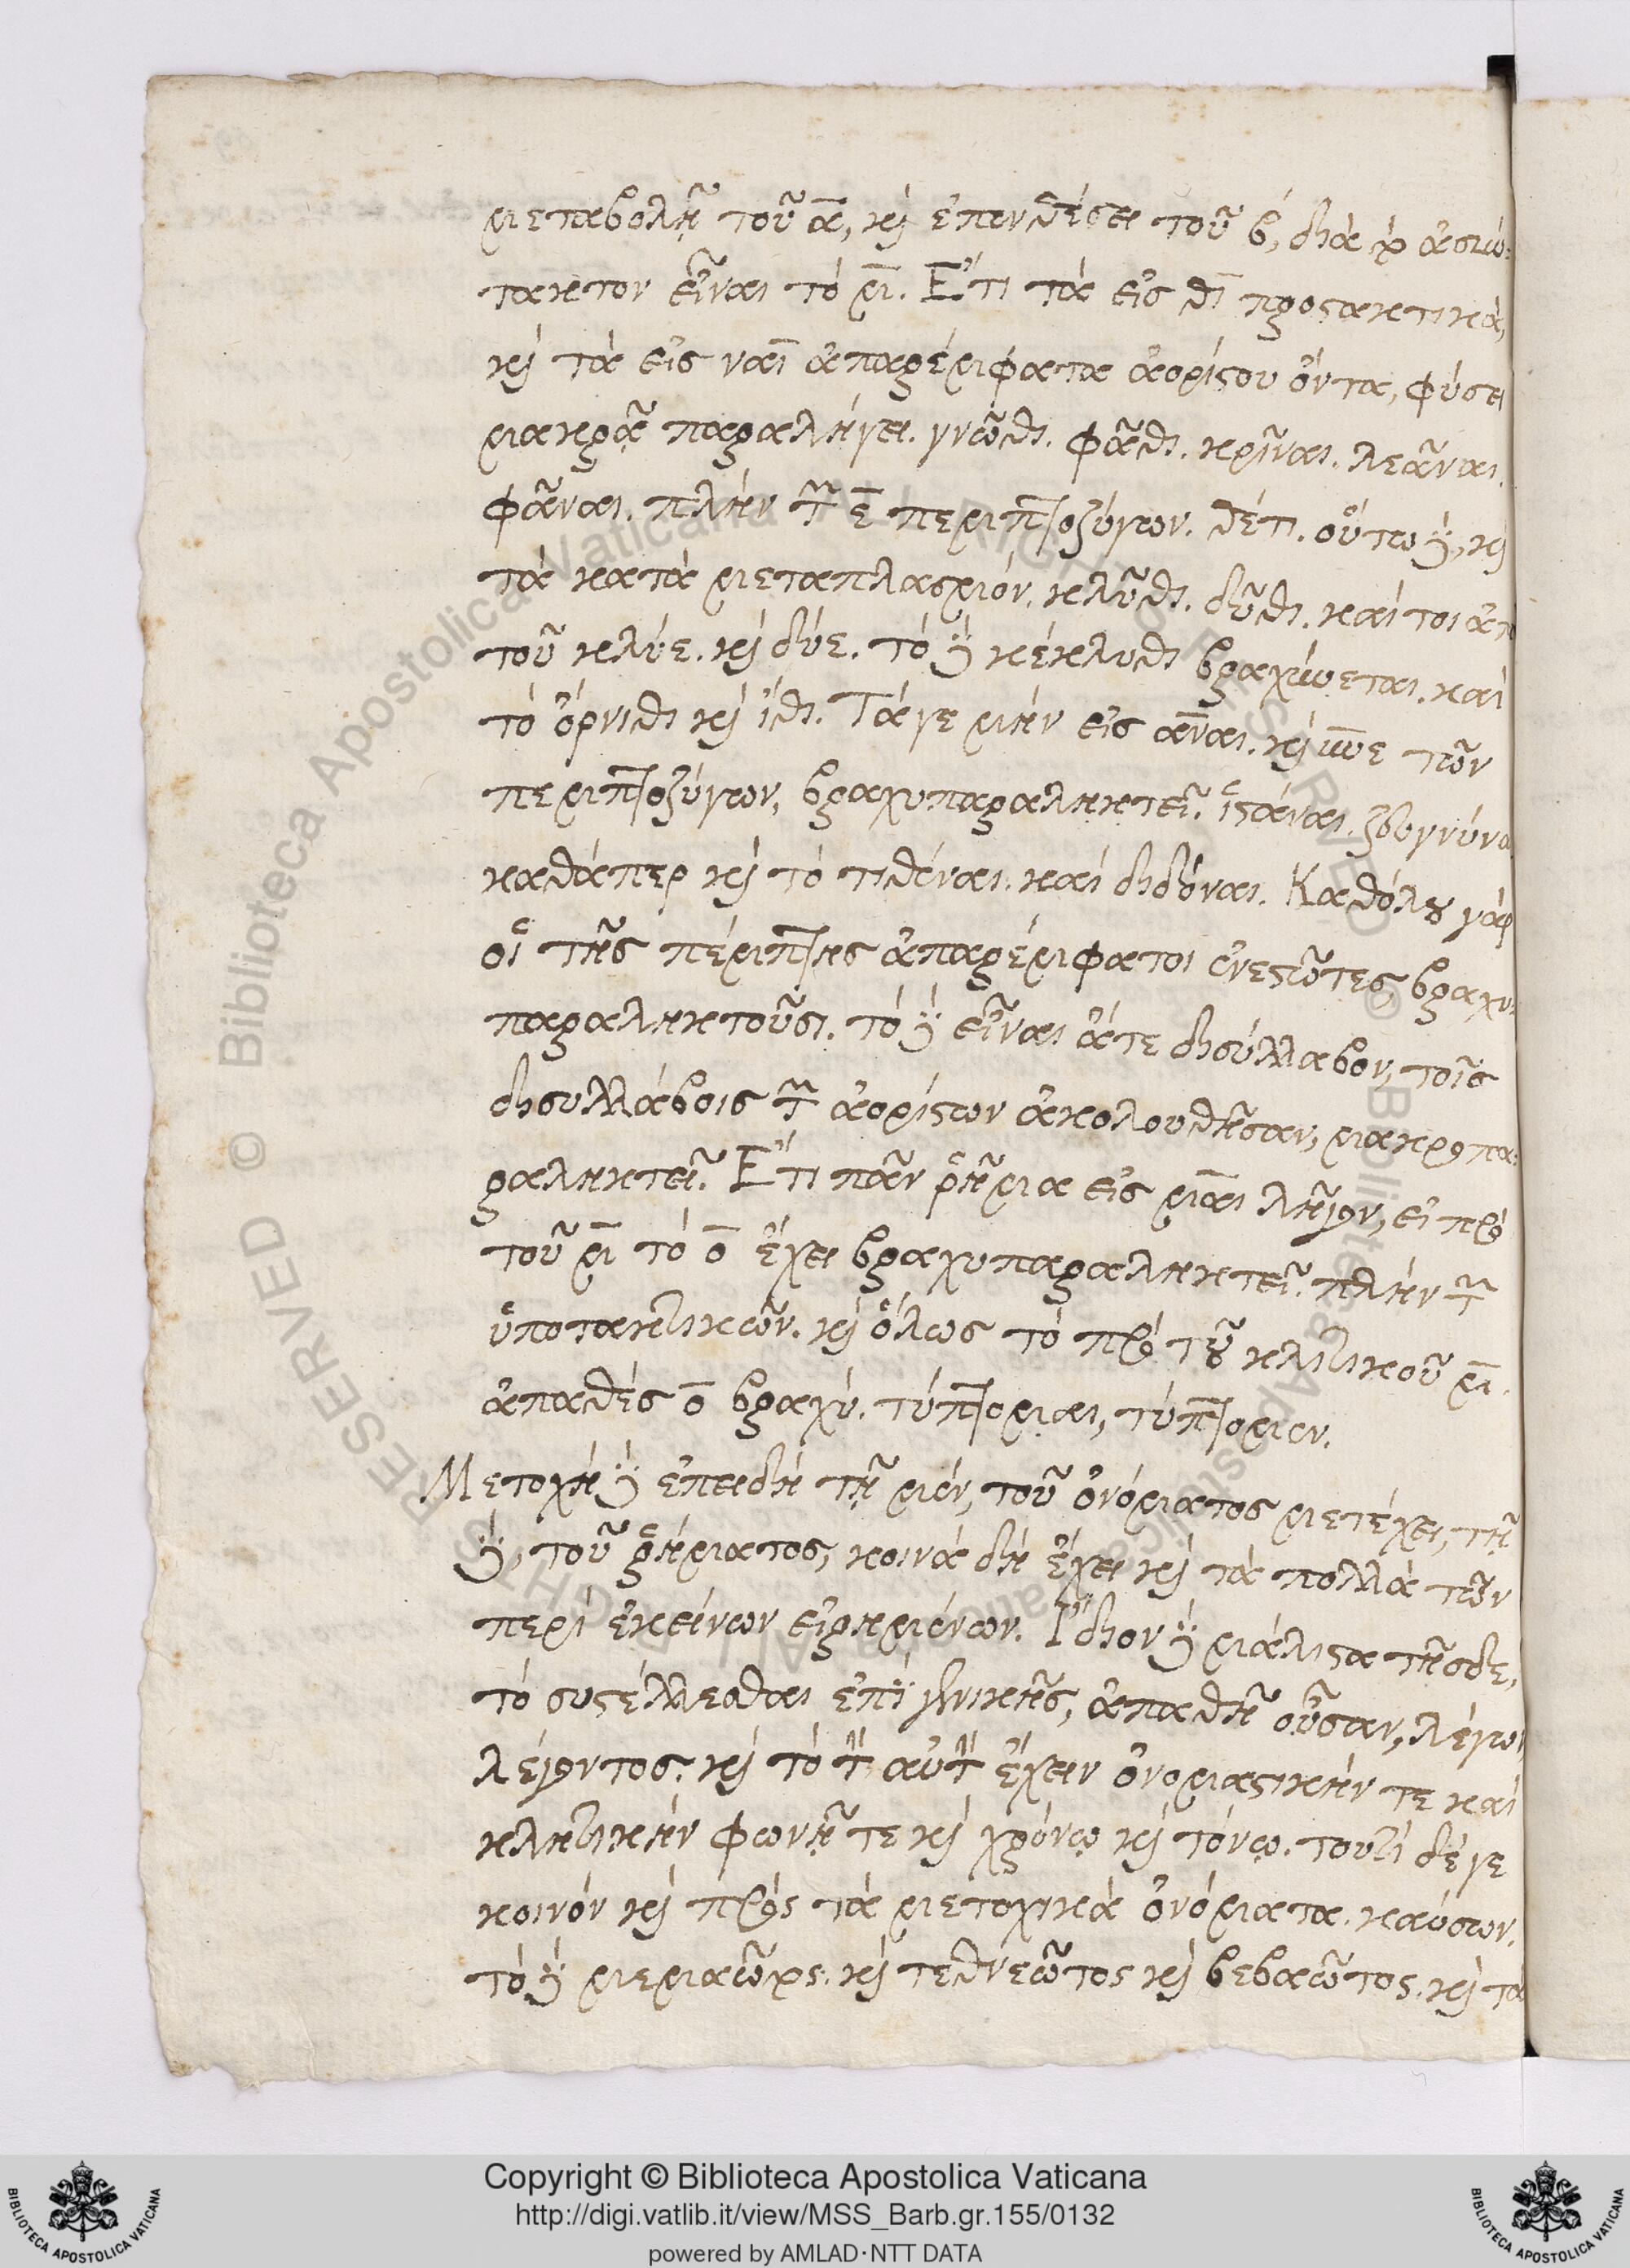 μεταβολῇ τοῦ α̅, καὶ ἐπενθέσει τοῦ β, διὰ τὸ ἀσύν-
τακτον εἶναι τὸ μ̅. Ἔτι τὰ εἰς θι προστακτικὰ,
καὶ τὰ εἰς ναι ἀπαρέμφατα ἀορίστου ὄντα, φύσει
μακρᾷ παραλήγει. γνῶθι. φᾶθι. κρῖναι. λεᾶναι.
φᾶναι. πλὴν τῶν ἐ̅ περισποζύγων. θέτι. οὕτω δὲ, καὶ
τὰ κατὰ μεταπλασμόν. κλῦθι. δῦθι. καί τοι ἀπὸ
τοῦ κλύε. καὶ δύε. τὸ δὲ κέκλυθι βραχύνεται. καὶ
τὸ ὄρνιθι καὶ ἴθι. Τά γε μὴν εἰς αναι. καὶ υναι τῶν
περισποζύγων, βραχυπαραληκτεῖ. ἱστάναι. ζευγνύναι
καθάπερ καὶ τὸ τιθέναι. καὶ διδόναι. Καθόλου γὰρ
οἱ τῆς περισπ΄ης ἀπαρέμφατοι ἐνεστῶτες, βραχυ-
παραληκτοῦσι. τὸ δὲ εἶναι ἅτε δισύλλαβον, τοῖς
δισυλλάβοις τῶν ἀορίστων ἀκολουθῆσαν, μακροπα-
ραληκτεῖ. Ἔτι πᾶν ῥῆμα εἰς μαι λῆγον, εἰ πρὸ
τοῦ μ̅ τὸ ο̅ ἔχει βραχυπαραληκτεῖ. πλὴν τῶν
ὑποτακτικῶν. καὶ ὅλως τὸ πρὸ τοῦ κλιτικοῦ μ̅.
ἀπαθὲς ο̅ βραχύ. τύπτομαι, τύπτομεν.
Μετοχὴ δὲ ἐπειδὴ τῇ μὲν, τοῦ ὀνόματος μετέχει, τῇ
δὲ, τοῦ ῥήματος, κοινὰ δὴ ἔχει καὶ τὰ πολλὰ τῶν
περὶ ἐκείνων εἰρημένων. Ἴδιον δὲ μάλιστα τῆσδε,
τὸ συστέλλεσθαι ἐπὶ γενικῆς, ἀπαθῆ οὖσαν, λέγων
λέγοντος. καὶ τὸ τὴν αὐτὴν ἔχειν ὀνομαστικήν τε καὶ
κλητικὴν φωνῇ τε καὶ χρόνῳ καὶ τόνῳ. τουτὶ δέ γε
κοινὸν καὶ πρὸς τὰ μετοχικὰ ὀνόματα. καύσων.
τὸ δὲ μεμαῶτος. καὶ τεθνεῶτος καὶ βεβαῶτος. καὶ τὰ
Copyright © Biblioteca Apostolica Vaticana
http://digi.vatlib.it/view/MSS_Barb.gr.155/0132
powered by AMLAD·NTT DATA